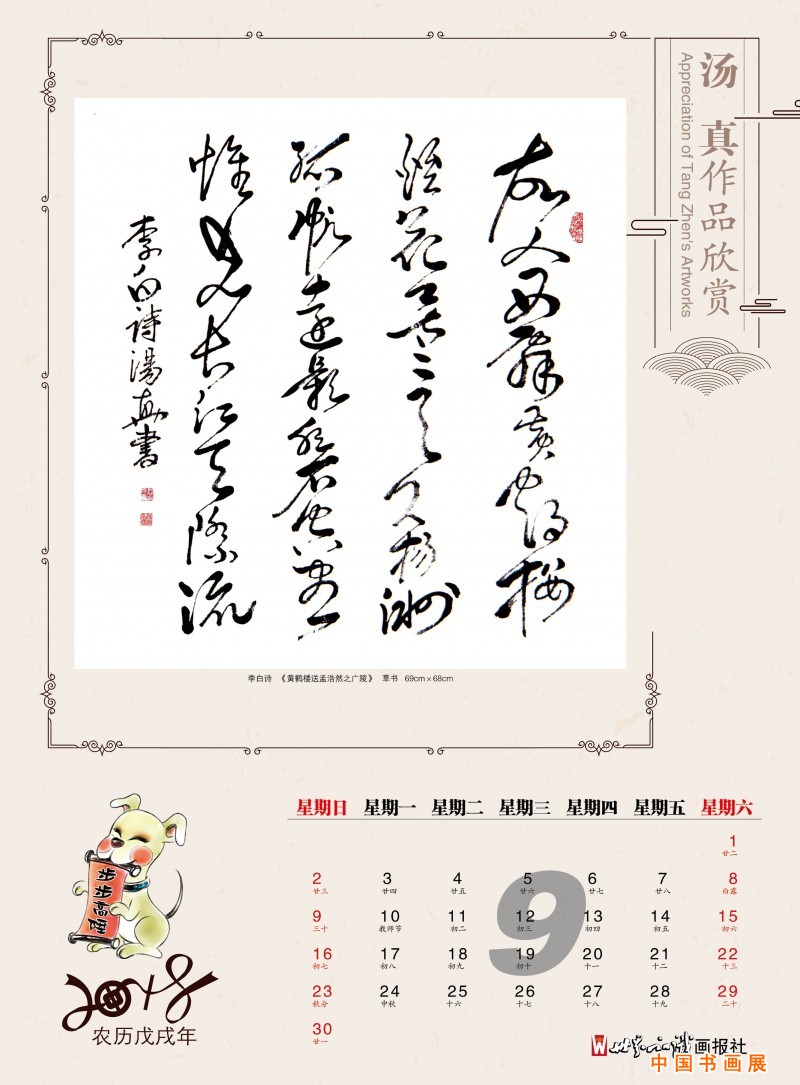 汤真作品欣赏
Appreciation of Tang Zhen's Artworks
故人西辭黃鶴樓
煙花三月下揚州
孤帆遠影碧空盡
惟見長江天際流
李白詩湯真書
李白诗 《黄鹤楼送孟浩然之广陵》 草书 69cm×68cm
步步高陞
2018
农历戊戌年
9
星期日 星期一 星期二 星期三 星期四 星期五 星期六
1
廿二
2 3 4 5 6 7 8
廿三 廿四 廿五 廿六 廿七 廿八 白露
9 10 11 12 13 14 15
三十 教师节 初二 初三 初四 初五 初六
16 17 18 19 20 21 22
初七 初八 初九 初十 十一 十二 十三
23 24 25 26 27 28 29
秋分 中秋 十六 十七 十八 十九 二十
30
廿一
世界知识画报社
中国书画展